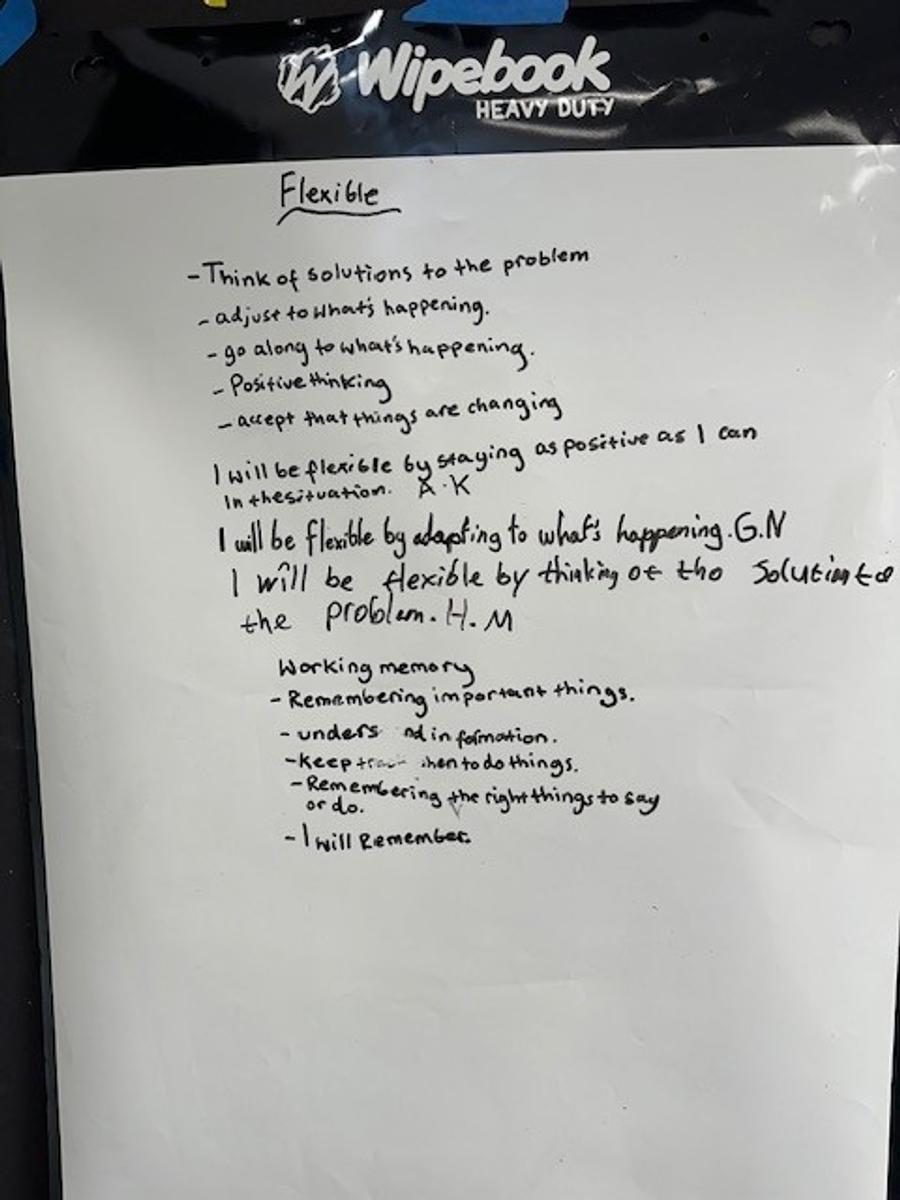 Wipebook
HEAVY DUTY
Flexible
- Think of solutions to the problem
- adjust to what's happening.
- go along to what's happening.
- Positive thinking
- accept that things are changing
I will be flexible by staying as positive as I can
In the situation. A.K
I will be flexible by adapting to what's happening. G.N
I will be flexible by thinking of the solution to
the problem. H.M
Working memory
- Remembering important things.
- unders nd information.
- Keep to do things.
- Remembering the right things to say
or do.
- I will Remember.